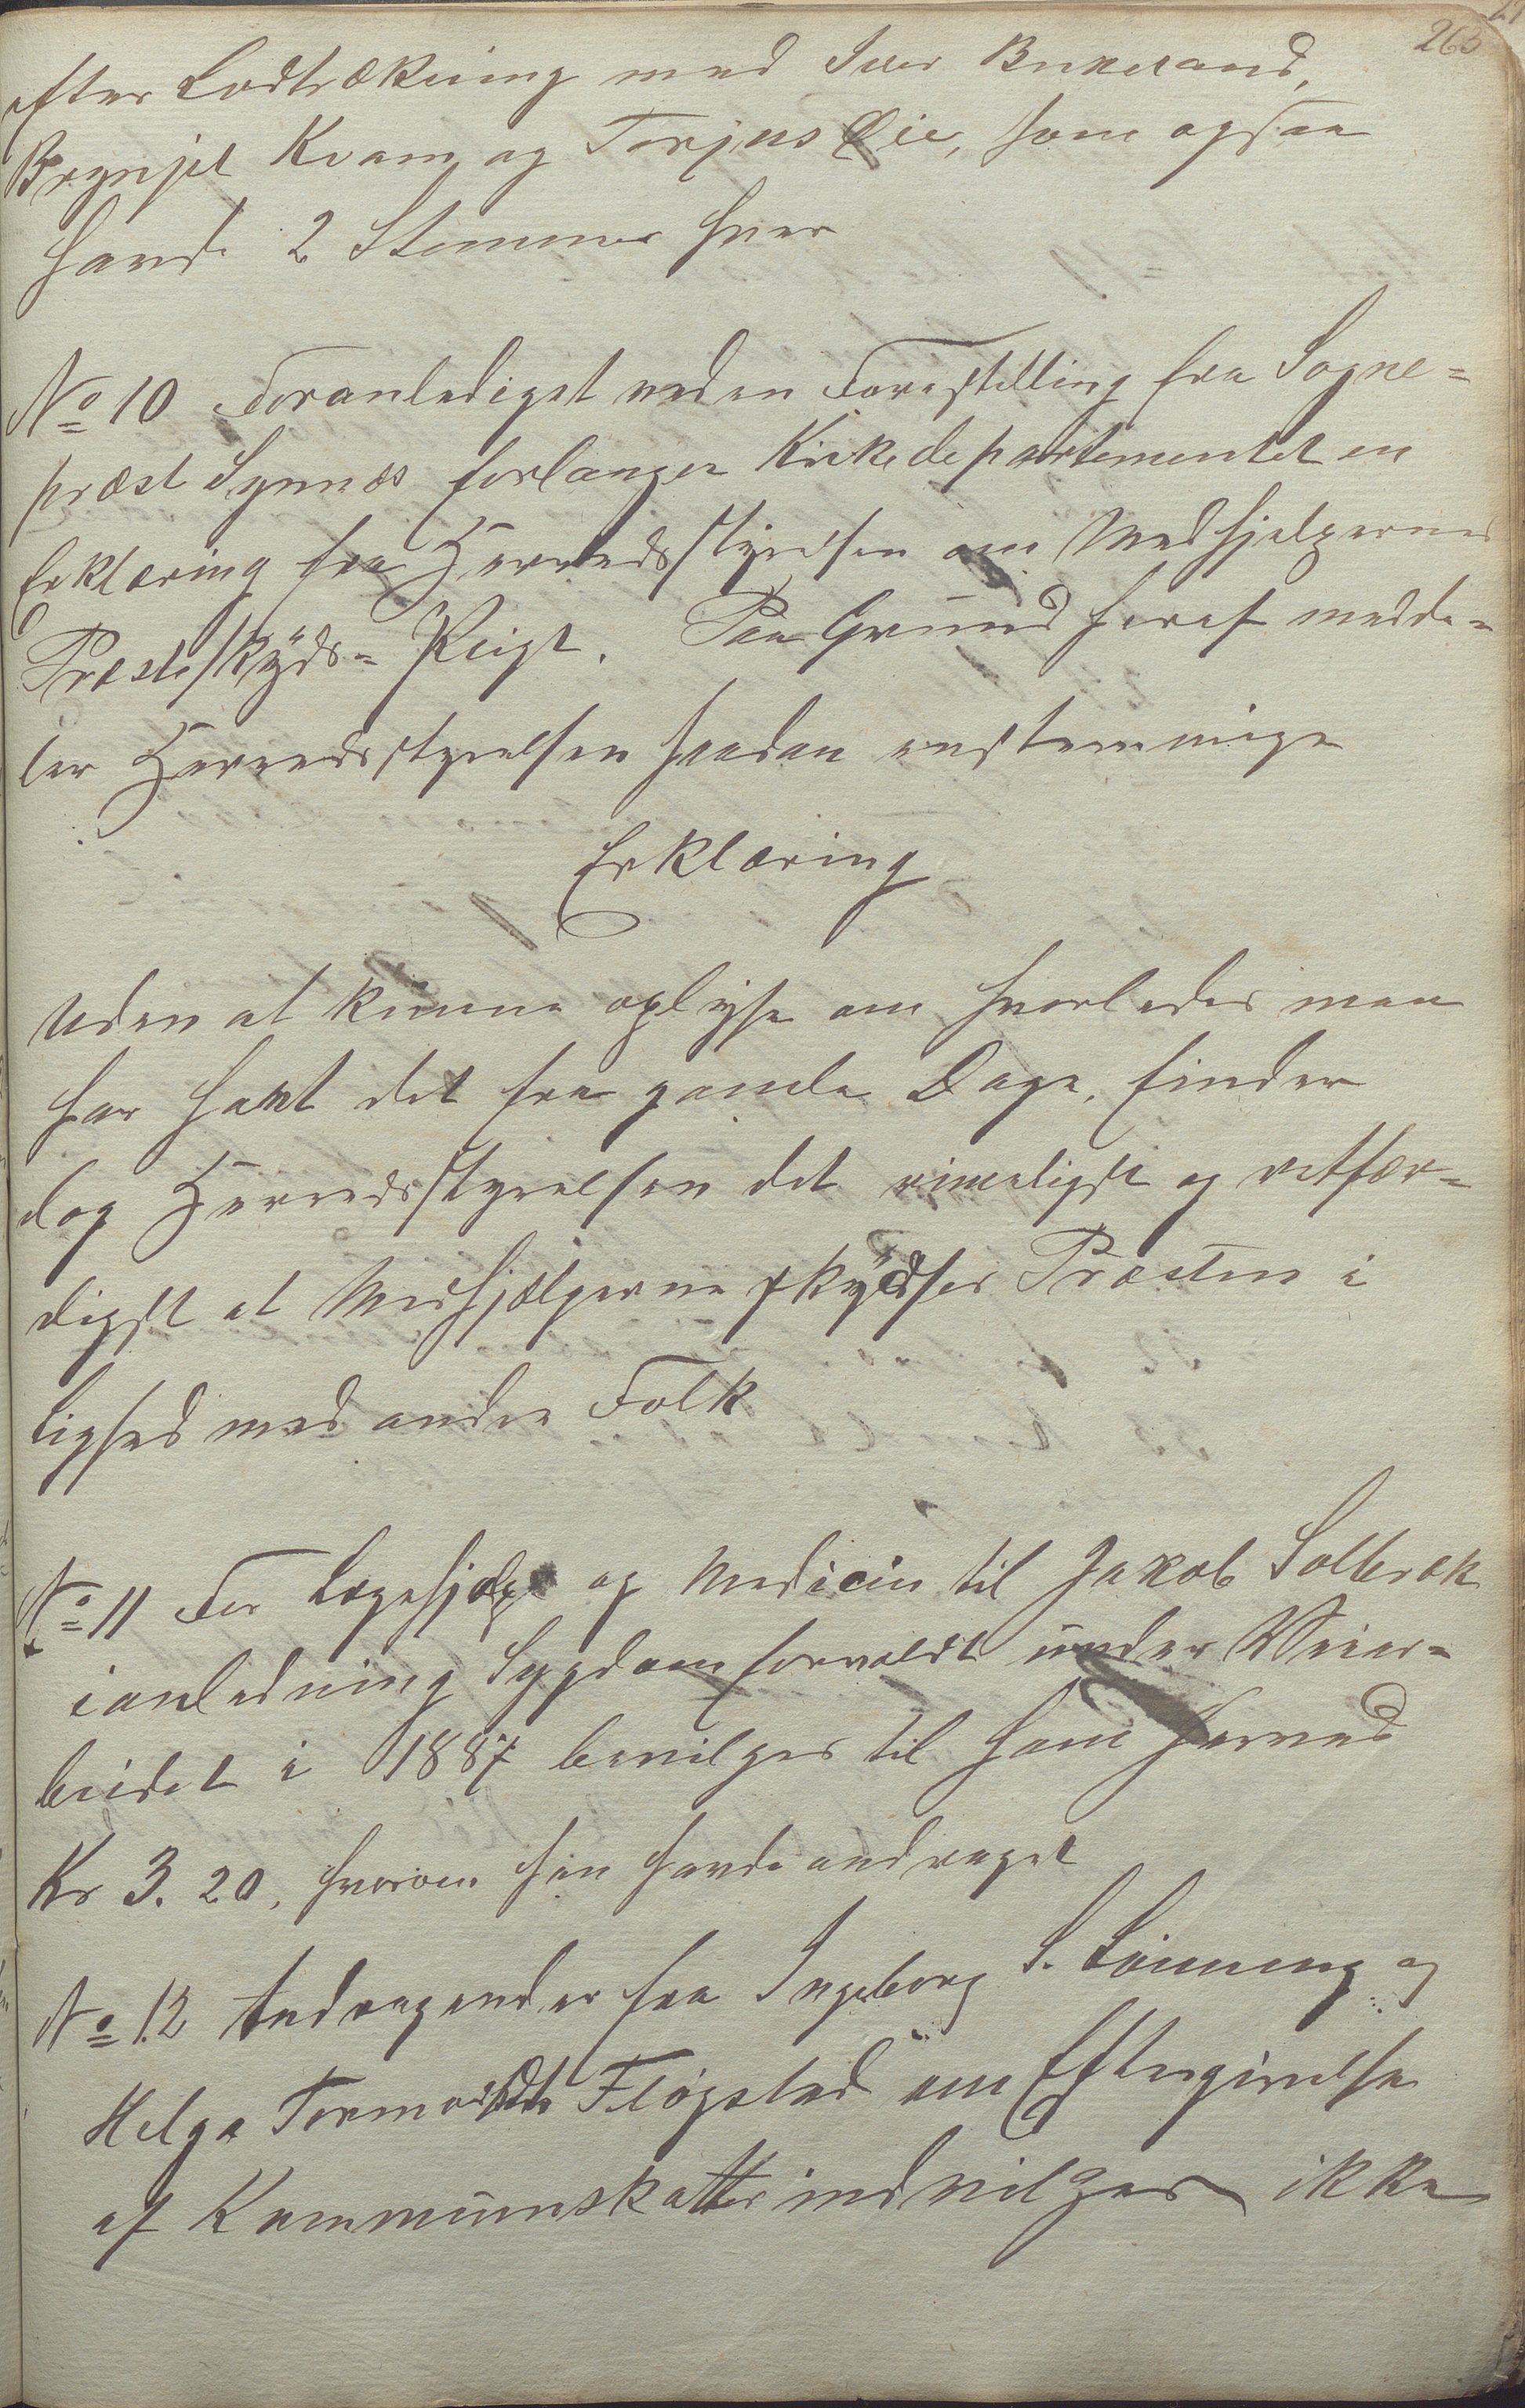 263
efter Lodtrækning med Iver Birkeland,
Brynjel Kvam og Torjus Lie, som ogsaa
havde 2 Stemmer hver
No 10 Foranlediget ved en Forestilling fra Sogne-
præst Synnes forlanger Kirkedepartementet en
Erklæring fra Herredsstyrelsen om Medhjelpernes
Præsteskyds-Pligt. Paa Grund heraf medde-
ler Herredsstyrelsen saadan enstemmige
Erklæring
Uden at kunne oplyse om hvorledes man
har havt det fra gamle Dage, finder
dog Herredsstyrelsen det rimeligst og retfær-
digst at Medhjælperne skydser Præsten i
Lighed med andre Folk
No 11 For Lægehjælp og Medicin til Jakob Solbræk
i anledning Sygdom forvoldt under Veiar-
beidet i 1887 bevilges til ham herved
Kr 3.20, hvorom han havde andraget
No 12 Andragender fra Ingeborg S. Løining og
Helga Tormodsdtr Fløgstad om Eftergivelse
af Kommuneskatter indvilges ikke